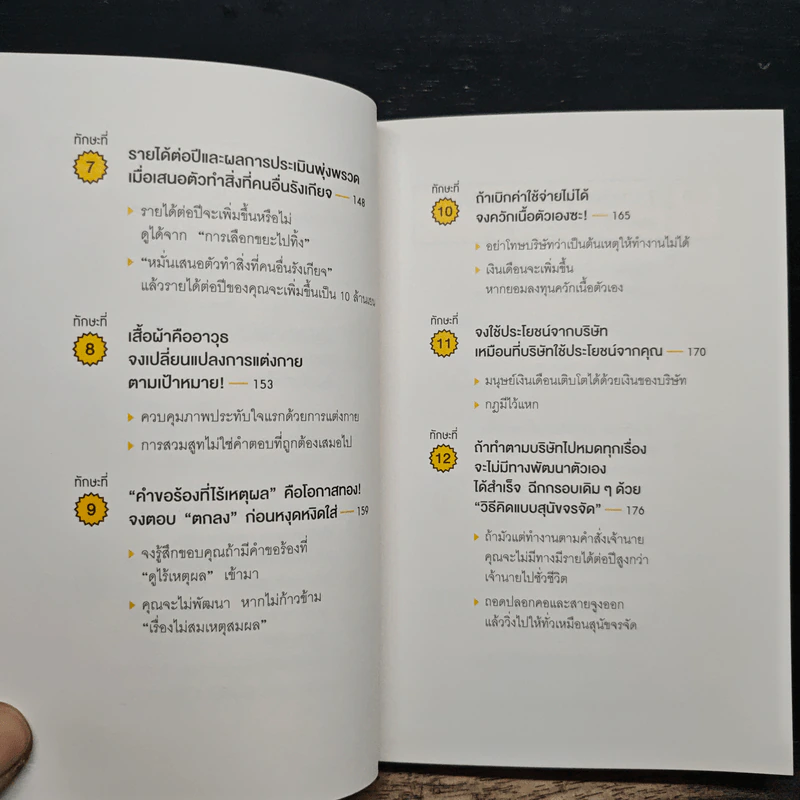 ทักษะที่
7
รายได้ต่อปีและผลการประเมินพุ่งพรวด
เมื่อเสนอตัวทำสิ่งที่คนอื่นรังเกียจ — 148
รายได้ต่อปีจะเพิ่มขึ้นหรือไม่
ดูได้จาก “การเลือกขยะไปทิ้ง”
“หมั่นเสนอตัวทำสิ่งที่คนอื่นรังเกียจ”
แล้วรายได้ต่อปีของคุณจะเพิ่มขึ้นเป็น 10 ล้านเยน
ทักษะที่
8
เสื้อผ้าคืออาวุธ
จงเปลี่ยนแปลงการแต่งกาย
ตามเป้าหมาย! — 153
ควบคุมภาพประทับใจแรกด้วยการแต่งกาย
การสวมสูทไม่ใช่คำตอบที่ถูกต้องเสมอไป
ทักษะที่
9
“คำขอร้องที่ไร้เหตุผล” คือโอกาสทอง!
จงตอบ “ตกลง” ก่อนหงุดหงิดใส่ — 159
จงรู้สึกขอบคุณถ้ามีคำขอร้องที่
“ดูไร้เหตุผล” เข้ามา
คุณจะไม่พัฒนา หากไม่ก้าวข้าม
“เรื่องไม่สมเหตุสมผล”
ทักษะที่
10
ถ้าเบิกค่าใช้จ่ายไม่ได้
จงควักเนื้อตัวเองซะ! — 165
อย่าโทษบริษัทว่าเป็นต้นเหตุให้ทำงานไม่ได้
เงินเดือนจะเพิ่มขึ้น
หากยอมลงทุนควักเนื้อตัวเอง
ทักษะที่
11
จงใช้ประโยชน์จากบริษัท
เหมือนที่บริษัทใช้ประโยชน์จากคุณ — 170
มนุษย์เงินเดือนเติบโตได้ด้วยเงินของบริษัท
กฎมีไว้แหก
ทักษะที่
12
ถ้าทำตามบริษัทไปหมดทุกเรื่อง
จะไม่มีทางพัฒนาตัวเอง
ได้สำเร็จ ฉีกกรอบเดิม ๆ ด้วย
“วิธีคิดแบบสุนัขจรจัด” — 176
ถ้ามัวแต่ทำงานตามคำสั่งเจ้านาย
คุณจะไม่มีทางมีรายได้ต่อปีสูงกว่า
เจ้านายไปชั่วชีวิต
ถอดปลอกคอและสายจูงออก
แล้ววิ่งไปให้ทั่วเหมือนสุนัขจรจัด